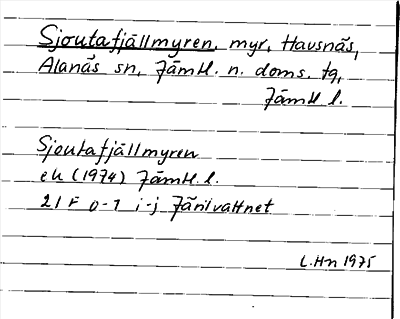 Sjoutafjällmyren, myr, Havsnäs,
Alanäs sn, Jämtl. n. doms. tg,
Jämtl l.
Sjoutafjällmyren
ek (1974) Jämtl. l.
21 F 0-1 i-j Järilvattnet
L.Hn 1975